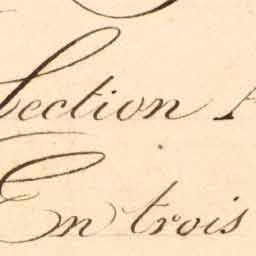 Section A
En trois